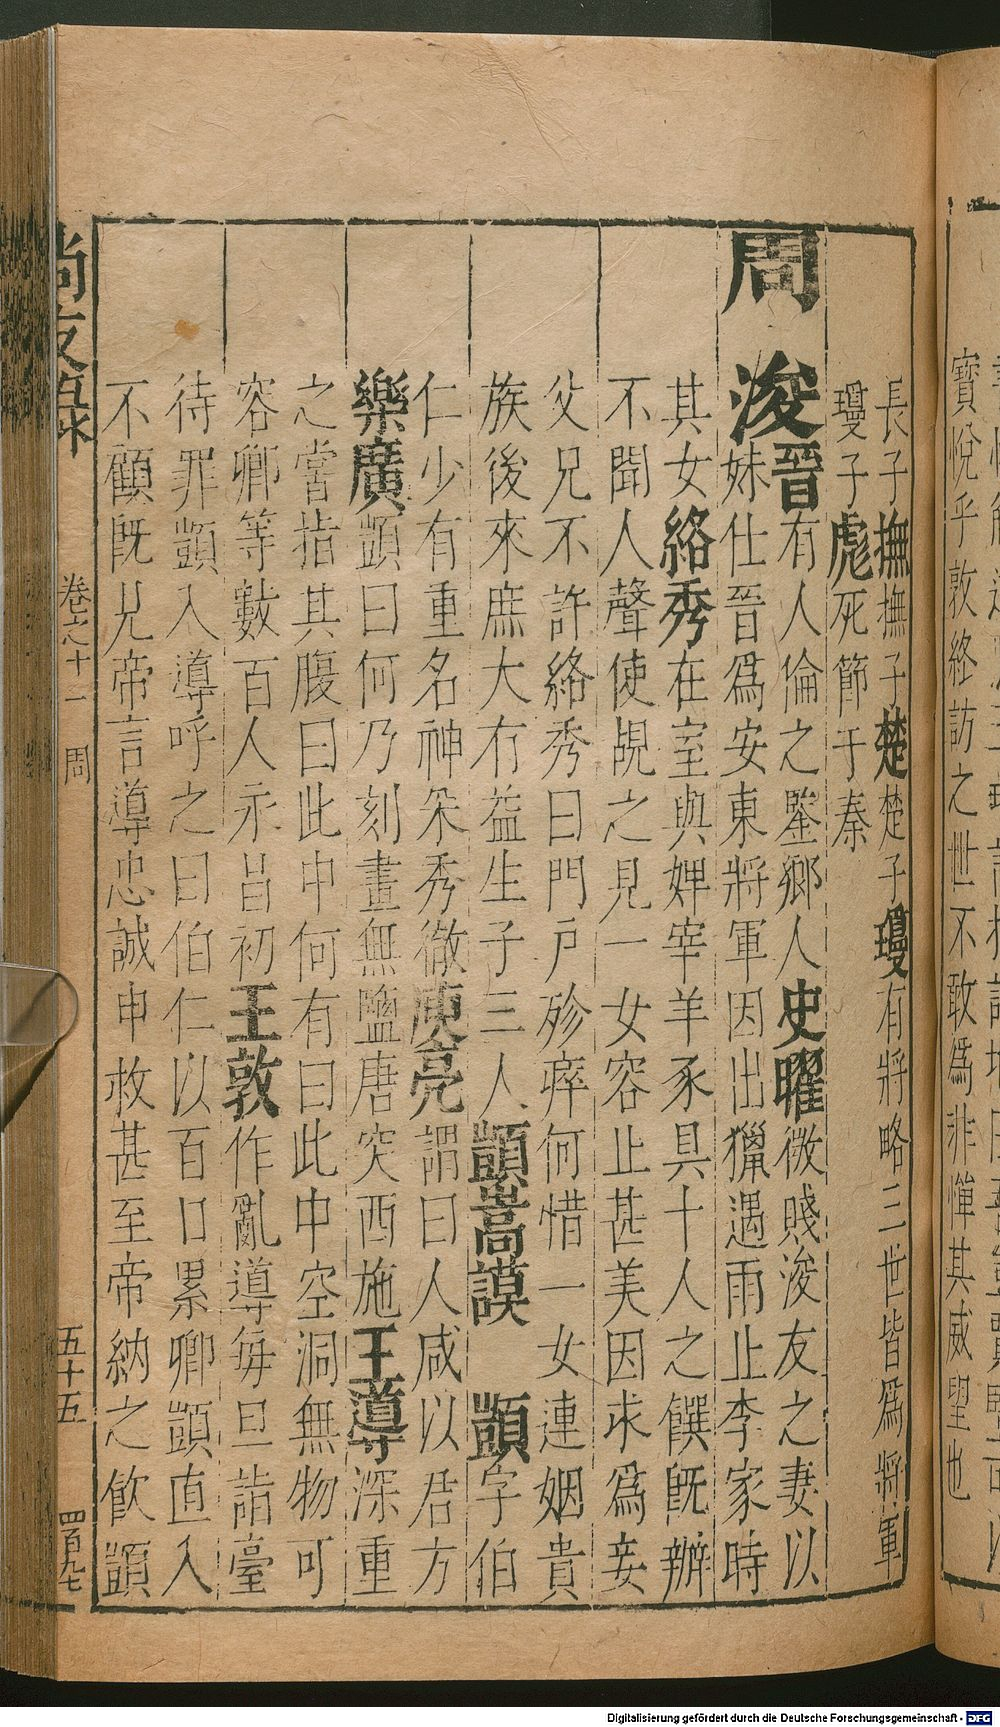 長子撫撫子楚楚子瓊有將略三世皆爲將軍
瓊子彪死節于秦
周浚晉有人倫之鑒鄉人史曜微賤浚友之妻以
妹仕晉爲安東將軍因出獵遇雨止李家時
其女絡秀在室與婢宰羊豕具十人之饌旣辦
不聞人聲使覘之見一女容止甚美因求爲妾
父兄不許絡秀曰門戸殄瘁何惜一女連姻貴
族後來庶大有益生子三人顗嵩謨 顗字伯
仁少有重名神朵秀徹庾亮謂曰人咸以君方
樂廣顗曰何乃刻畫無鹽唐突西施王導深重
之嘗指其腹曰此中何有曰此中空洞無物可
容卿等數百人永昌初王敦作亂導每旦詣臺
待罪顗入導呼之曰伯仁以百口累卿顗直入
不顧旣見帝言導忠誠申救甚至帝納之飲顗
尚友錄 卷之十一 周 五十五 四百九七
寶悅乎敦終訪之世不敢爲非憚其威望也
Digitalisierung gefördert durch die Deutsche Forschungsgemeinschaft - DFG